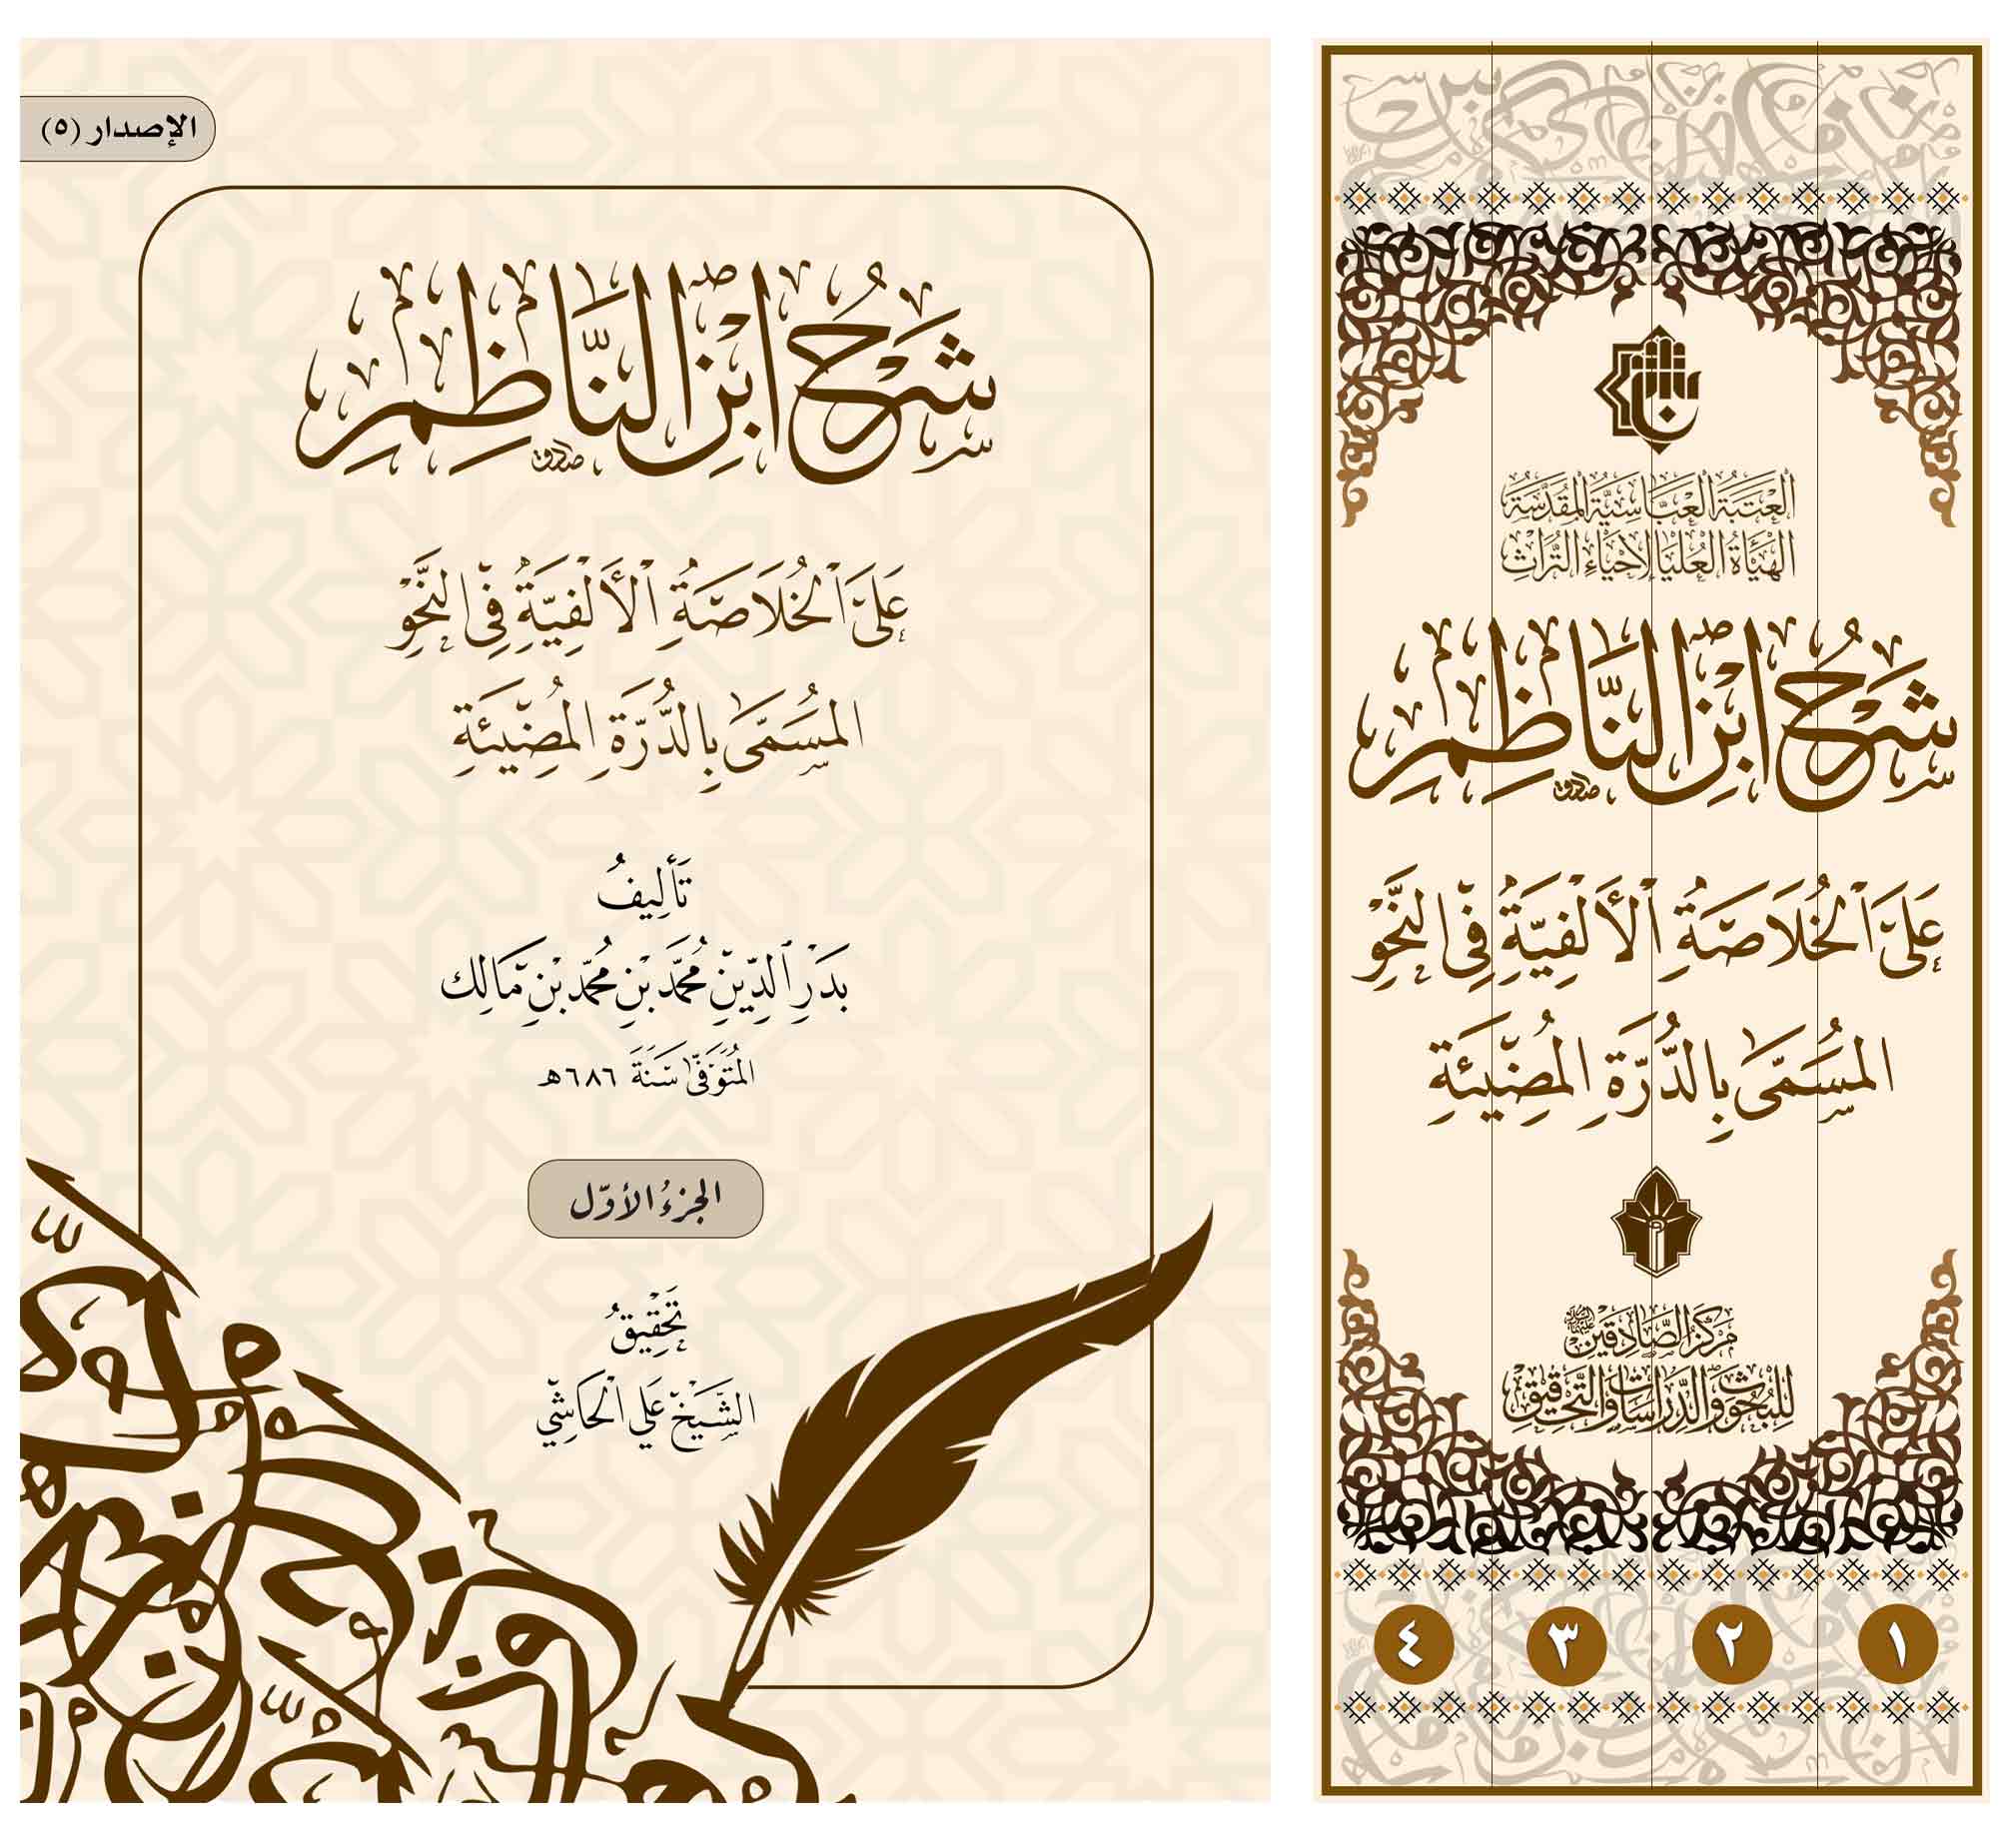 الإصدار (٥)
شَرْحُ ابْنِ النَّاظِمِ
عَلَى ٱلْخُلَاصَةُ ٱلْأَلْفِيَّةُ فِي النَّحْوِ
المُسَمَّى بِالدُّرَّةِ المُضِيئَةِ
تَأْلِيفُ
بَدْرِ ٱلدِّينِ مُحَمَّد بْنِ مُحَمَّد بْنِ مَالِك
المُتَوَفَّى سَنَةَ ٦٨٦هـ
الجزءُ الأوّل
تَحْقِيقُ
الشَّيْخ عَلي ٱلْحَاشِّي
العَتَبَةُ العَبَّاسِيَّةُ المُقَدَّسَةُ
الهَيْأَةُ العُلْيَا لِإحْيَاءِ التُّرَاثِ
شَرْحُ ابْنِ النَّاظِمِ
عَلَى ٱلْخُلَاصَةُ ٱلْأَلْفِيَّةُ فِي النَّحْوِ
المُسَمَّى بِالدُّرَّةِ المُضِيئَةِ
مَرْكَزُ الصَّادِقَيْنِ
لِلْبُحُوثِ وَالدِّرَاسَاتِ وَالتَّحْقِيقِ
١ ٢ ٣ ٤